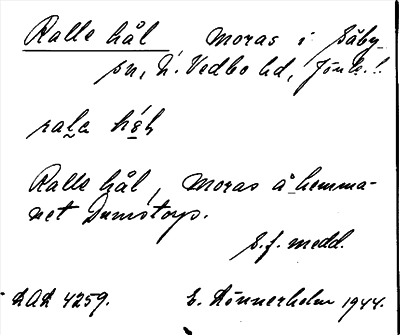 Ralle hål, moras i Säby
sn, N. Vedbo hd, Jönk. l.
rala hól
Ralle hål, moras å hemma-
net Dumstorp.
S. f. medd.
DAL 4259. E. Lönnerholm 1944.